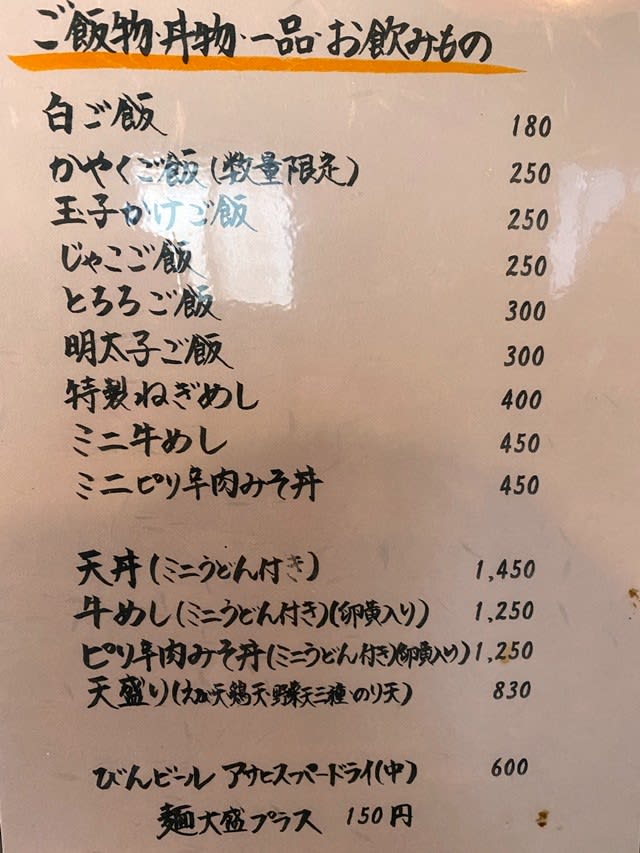 ご飯物・丼物・一品・お飲みもの
白ご飯 180
かやくご飯(数量限定) 250
玉子かけご飯 250
じゃこご飯 250
とろろご飯 300
明太子ご飯 300
特製ねぎめし 400
ミニ牛めし 450
ミニピリ辛肉みそ丼 450
天丼(ミニうどん付き) 1,450
牛めし(ミニうどん付き)(卵黄入り) 1,250
ピリ辛肉みそ丼(ミニうどん付き)(卵黄入り) 1,250
天盛り(えび天・鶏天・野菜天三種・のり天) 830
びんビール アサヒスーパードライ(中) 600
麺大盛プラス 150円